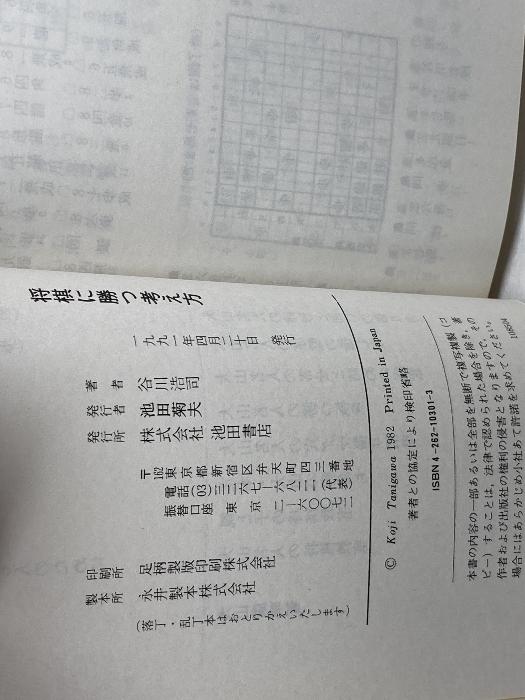 将棋に勝つ考え方
一九九一年四月二十日　発行
著者　谷川浩司
発行者　池田菊夫
発行所　株式会社 池田書店
〒162 東京都新宿区弁天町四三番地
電話(03)三二六七―六八二一(代表)
振替口座　東京二―六〇〇七二
印刷所　足柄製版印刷株式会社
製本所　永井製本株式会社
(落丁・乱丁本はおとりかえいたします)
© Koji Tanigawa 1982 Printed in Japan
著者との協定により検印省略
ISBN 4-262-10301-3
本書の内容の一部あるいは全部を無断で複写複製(コ
ピー)することは、法律で認められた場合を除き、著
作者および出版社の権利の侵害となりますので、その
場合にはあらかじめ小社あて許諾を求めてください。